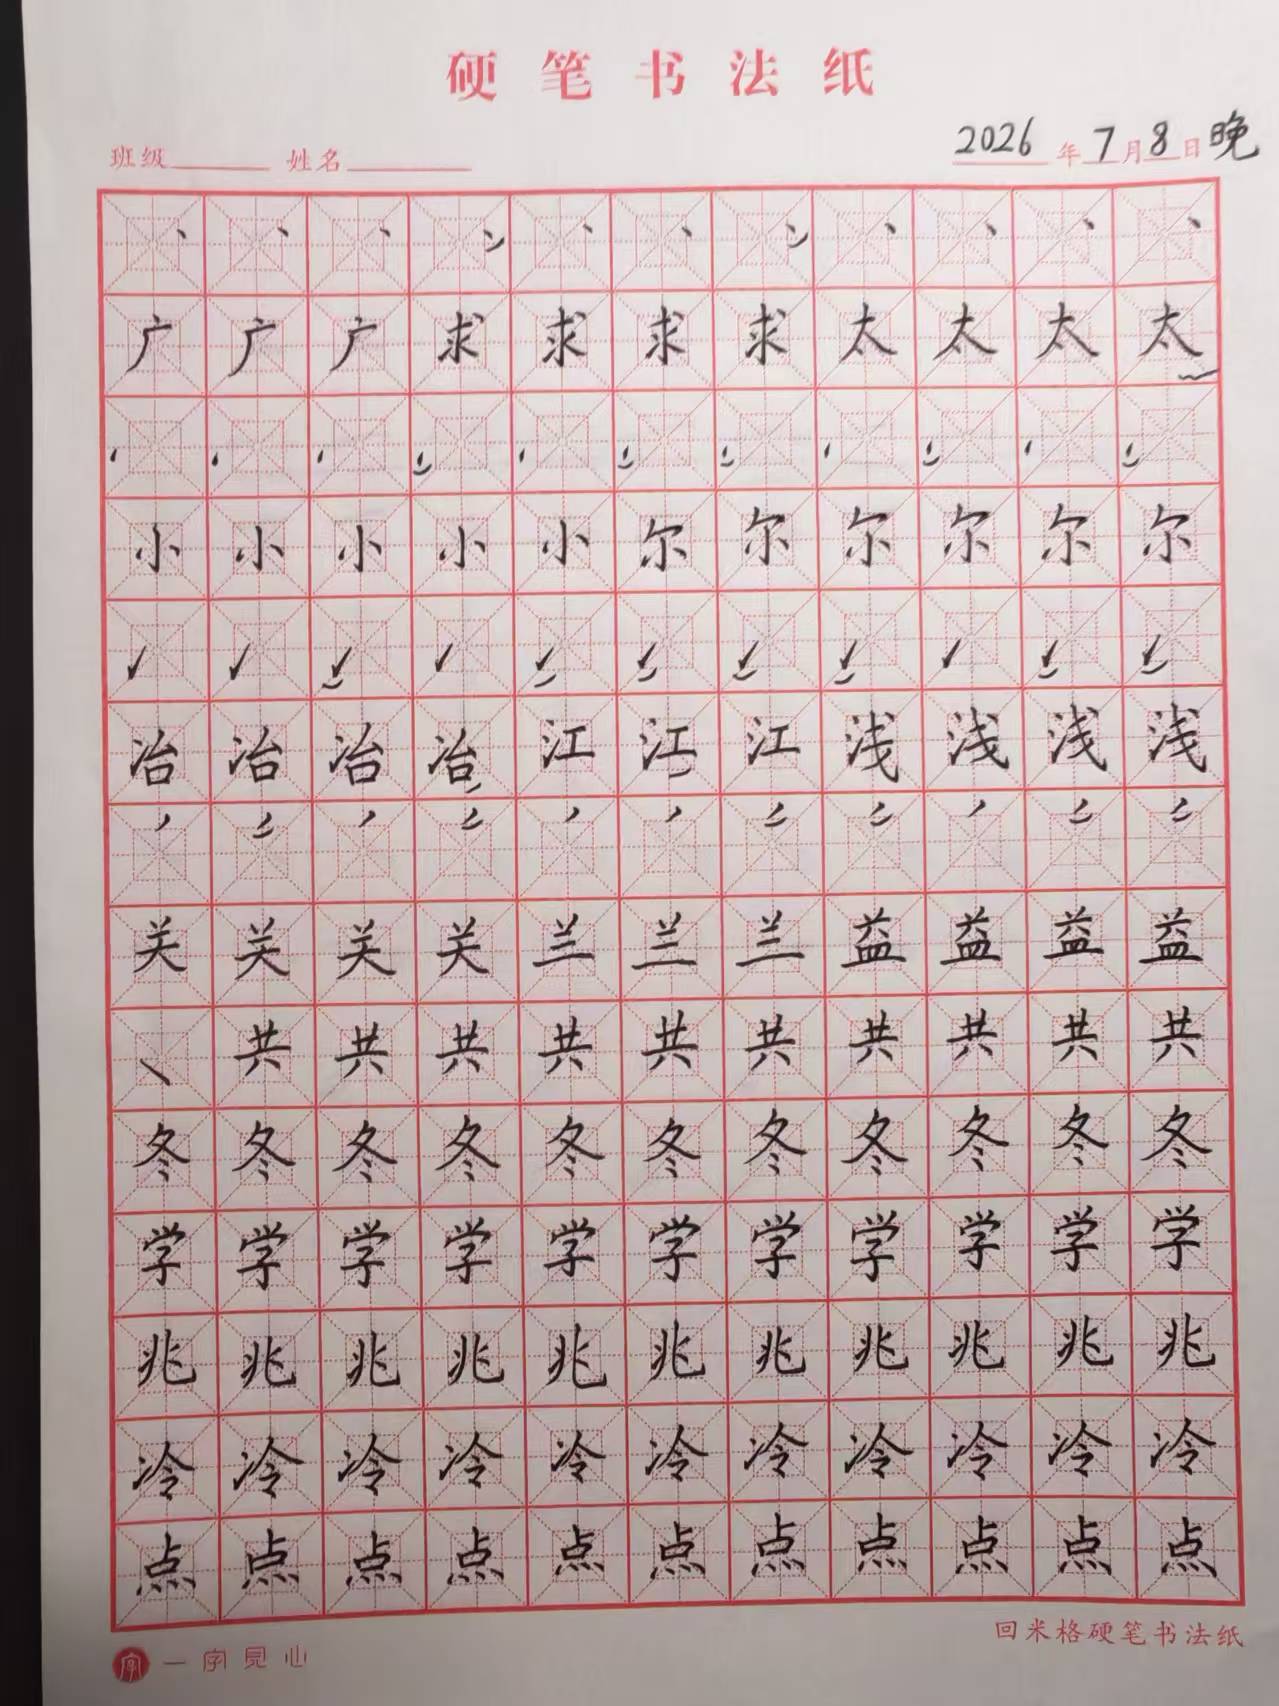 硬笔书法纸
班级 姓名 2026年7月8日晚
丶丶丶丶丶丶丶丶丶丶丶
广广广求求求求太太太太
小小小小小尔尔尔尔尔尔
冶冶冶冶江江江浅浅浅浅
关关关关兰兰兰益益益益
共共共共共共共共共共
冬冬冬冬冬冬冬冬冬冬冬
学学学学学学学学学学学
兆兆兆兆兆兆兆兆兆兆兆
冷冷冷冷冷冷冷冷冷冷冷
点点点点点点点点点点点
回米格硬笔书法纸
字 一字見心